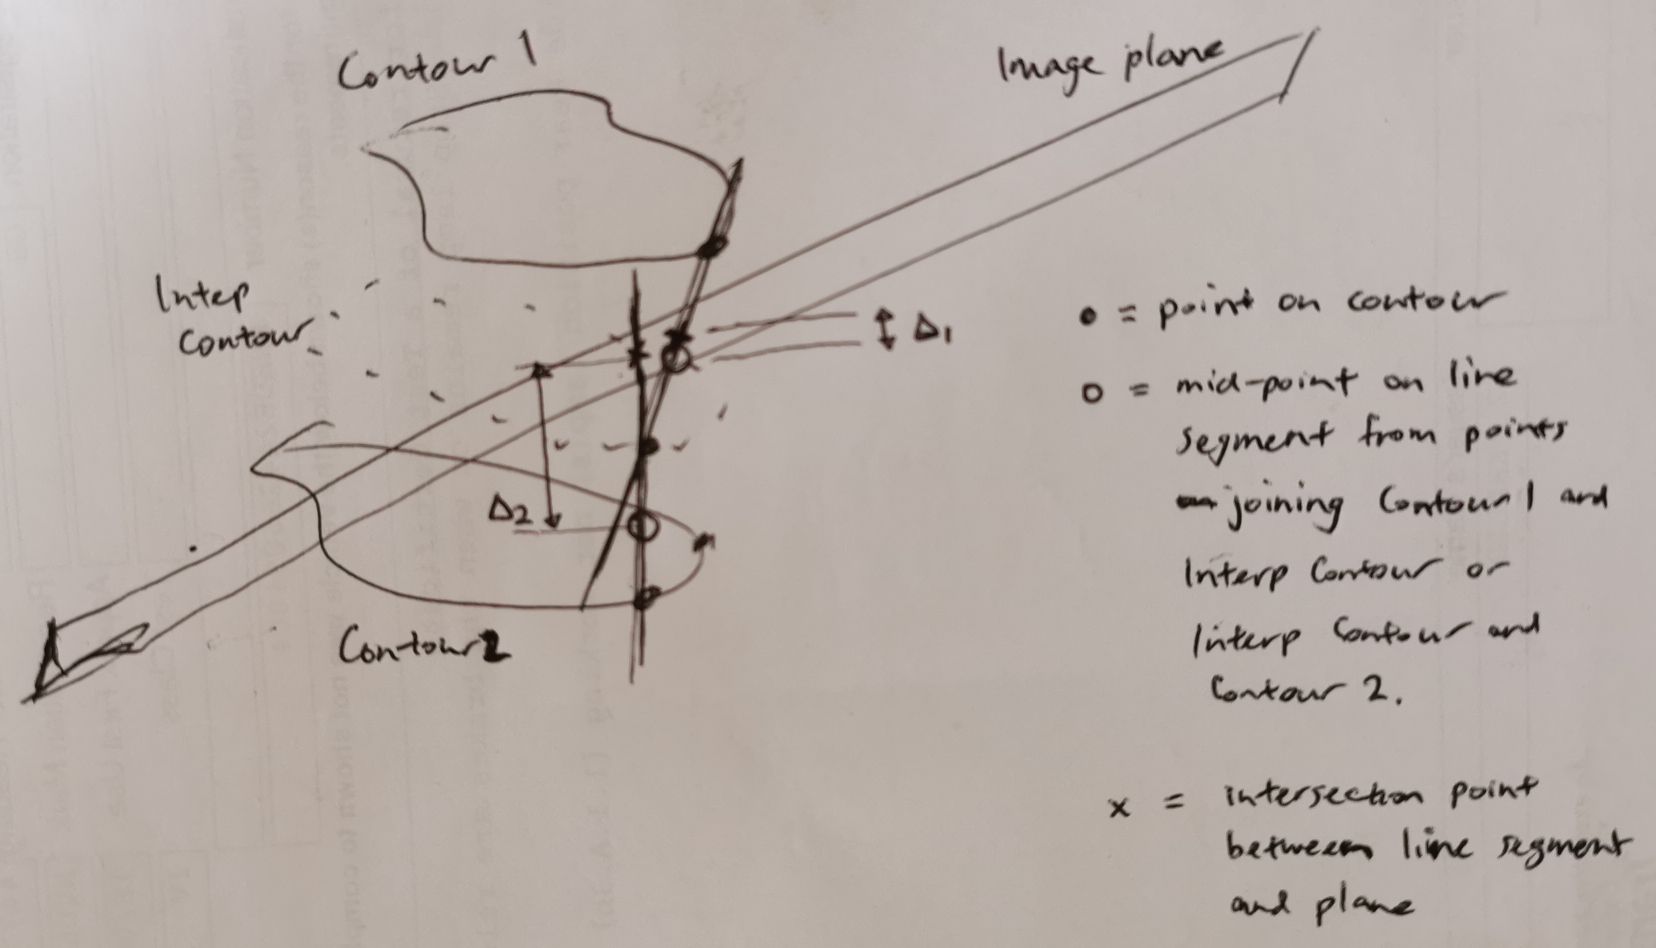 Contour 1
Image plane
Intep
Contour
Δ1
Δ2
Contour 2
• = point on contour
o = mid-point on line
segment from points
joining Contour 1 and
Interp Contour or
Interp Contour and
Contour 2.
x = intersection point
between line segment
and plane